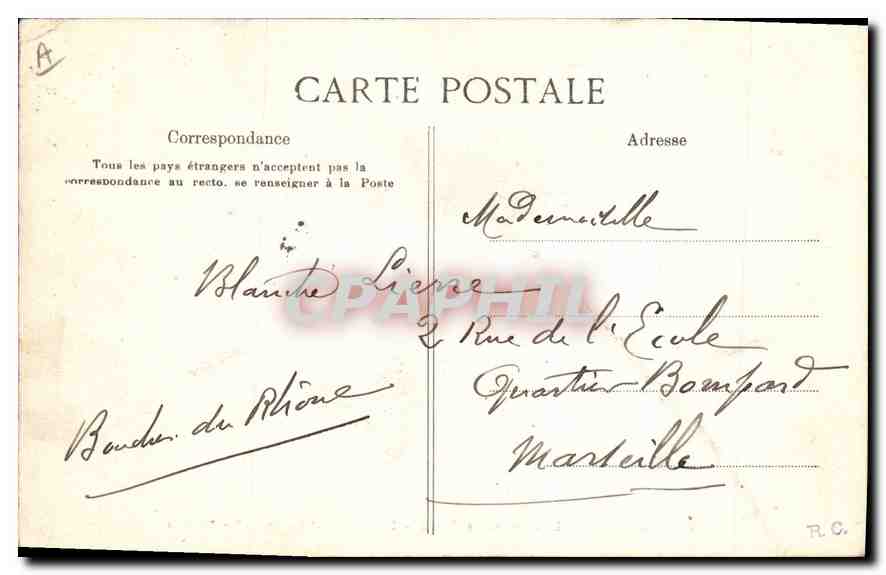 A
CARTE POSTALE
Correspondance
Adresse
Tous les pays étrangers n'acceptent pas la
correspondance au recto. se renseigner à la Poste
Mademoiselle
Blanche
CPAPHIL
2 Rue de l'Ecole
Quartier Bompard
Bouches du Rhône
Marseille
R.C.